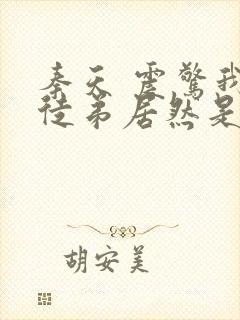 秦天 震驚我
徒弟居然是
胡安美